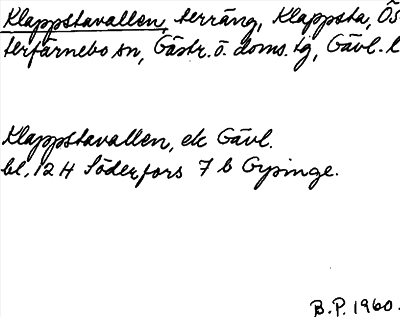 Klappstavallen, terräng, Klappsta, Ös-
terfärnebo sn, Gästr. ö. doms. tg, Gävl. l
Klappstavallen, ek Gävl.
bl. 12 H Söderfors 7 b Gysinge.
B.P. 1960.